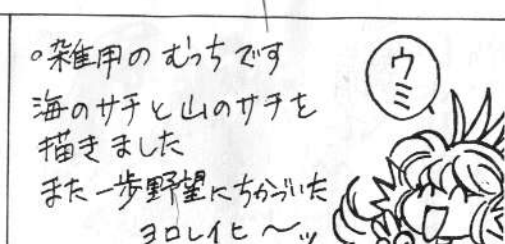 。雑用のむっちです
海のサチと山のサチを
描きました
また一歩野望にちかづいた
ヨロレイヒ〜ッ
ウミ